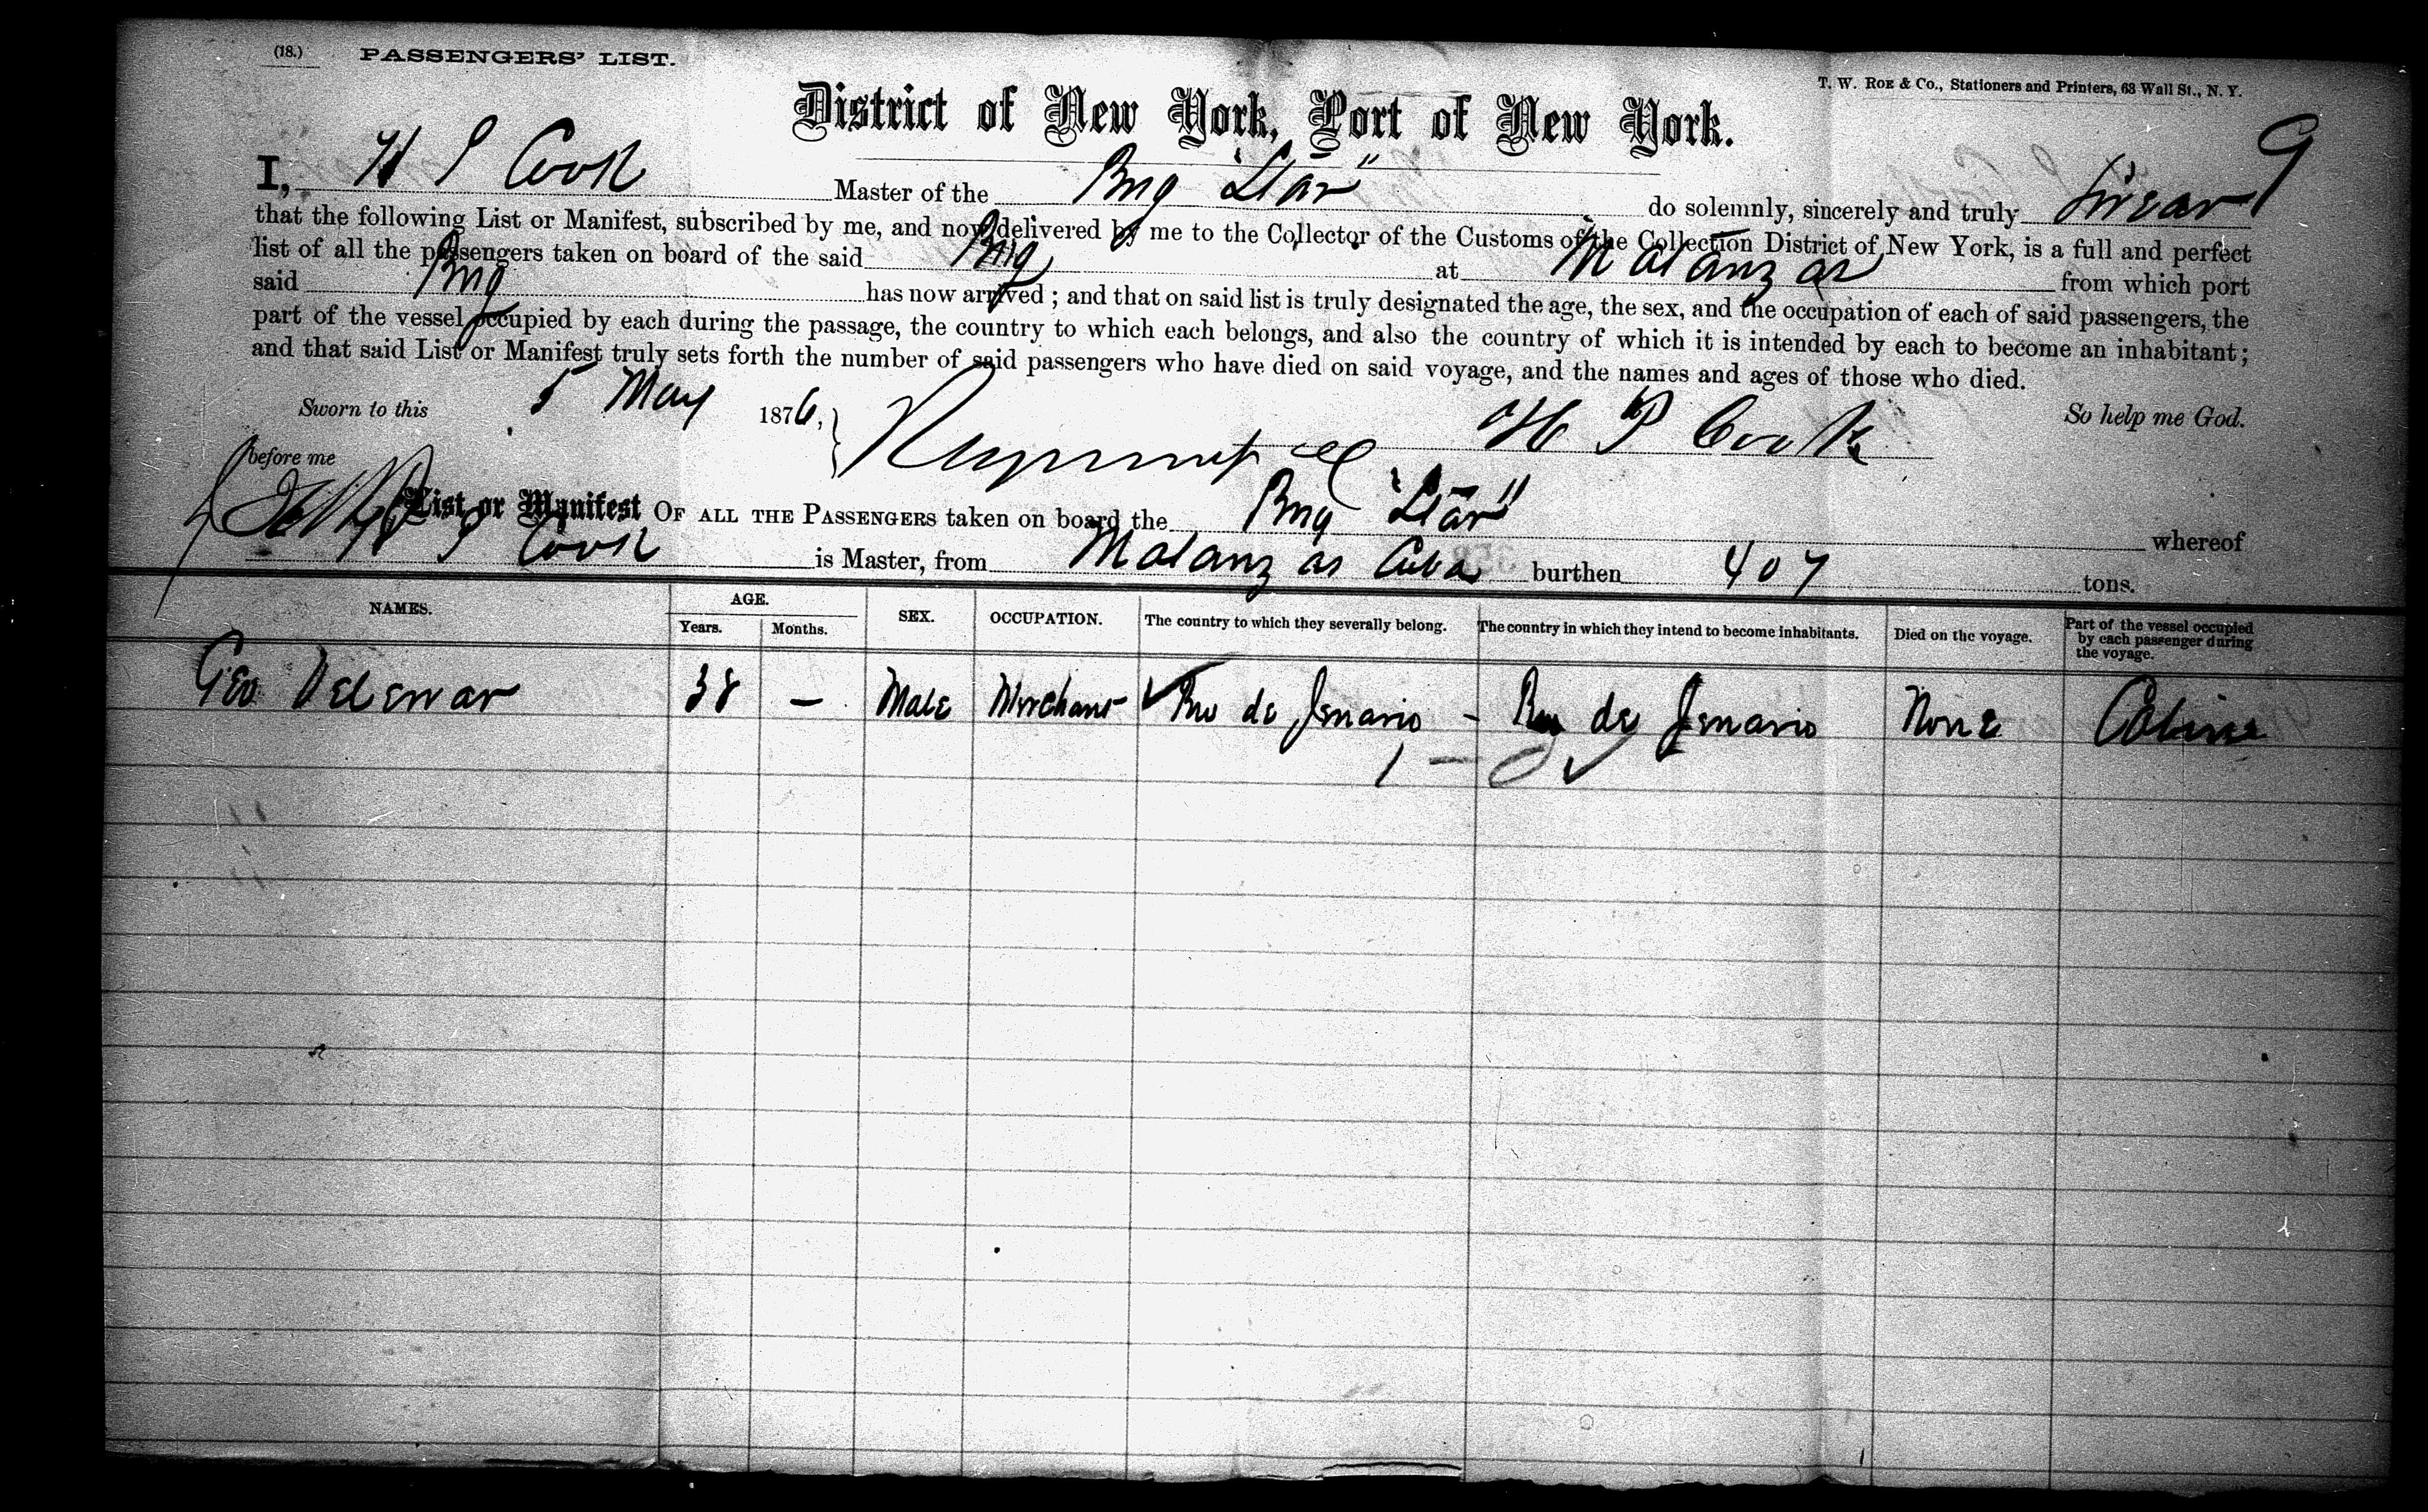 (18.) PASSENGERS' LIST.
T. W. Roe & Co., Stationers and Printers, 63 Wall St., N. Y.
District of New York, Port of New York.
9
I, H P Cook Master of the Brig "Star" do solemnly, sincerely and truly swear
that the following List or Manifest, subscribed by me, and now delivered by me to the Collector of the Customs of the Collection District of New York, is a full and perfect
list of all the passengers taken on board of the said Brig at Matanzas from which port
said Brig has now arrived; and that on said list is truly designated the age, the sex, and the occupation of each of said passengers, the
part of the vessel occupied by each during the passage, the country to which each belongs, and also the country of which it is intended by each to become an inhabitant;
and that said List or Manifest truly sets forth the number of said passengers who have died on said voyage, and the names and ages of those who died.
Sworn to this 5 May 1876, H P Cook So help me God.
before me
List or Manifest OF ALL THE PASSENGERS taken on board the Brig "Star" whereof
H P Cook is Master, from Matanzas Cuba burthen 407 tons.
NAMES. AGE. Years. Months. SEX. OCCUPATION. The country to which they severally belong. The country in which they intend to become inhabitants. Died on the voyage. Part of the vessel occupied by each passenger during the voyage.
Geo Delewar 38 — Male Merchant Rio de Jenario - Rio de Jenario None Cabine
1 — 0 ✓